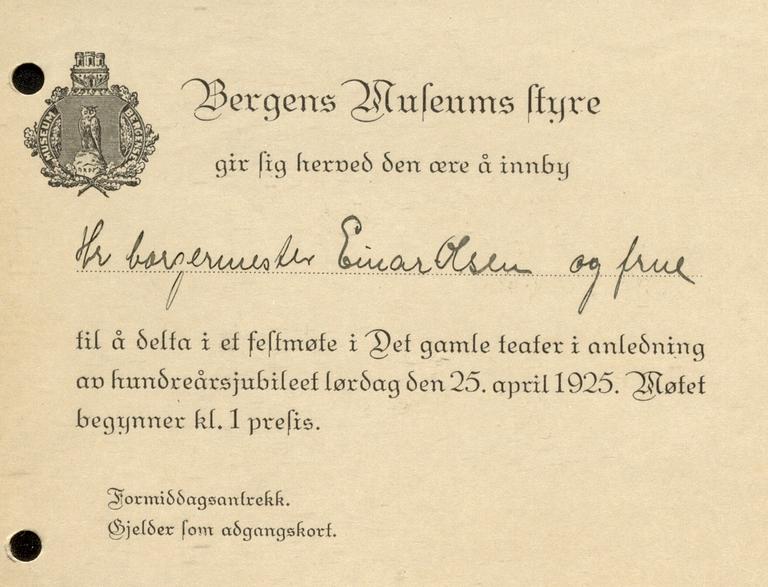 MUSEUM BERGENSE
Bergens Museums styre
gir sig herved den ære å innby
Hr borgermester Einar Olsen og frue
til å delta i et festmøte i Det gamle teater i anledning
av hundreårsjubileet lørdag den 25. april 1925. Møtet
begynner kl. 1 presis.
Formiddagsantrekk.
Gjelder som adgangskort.